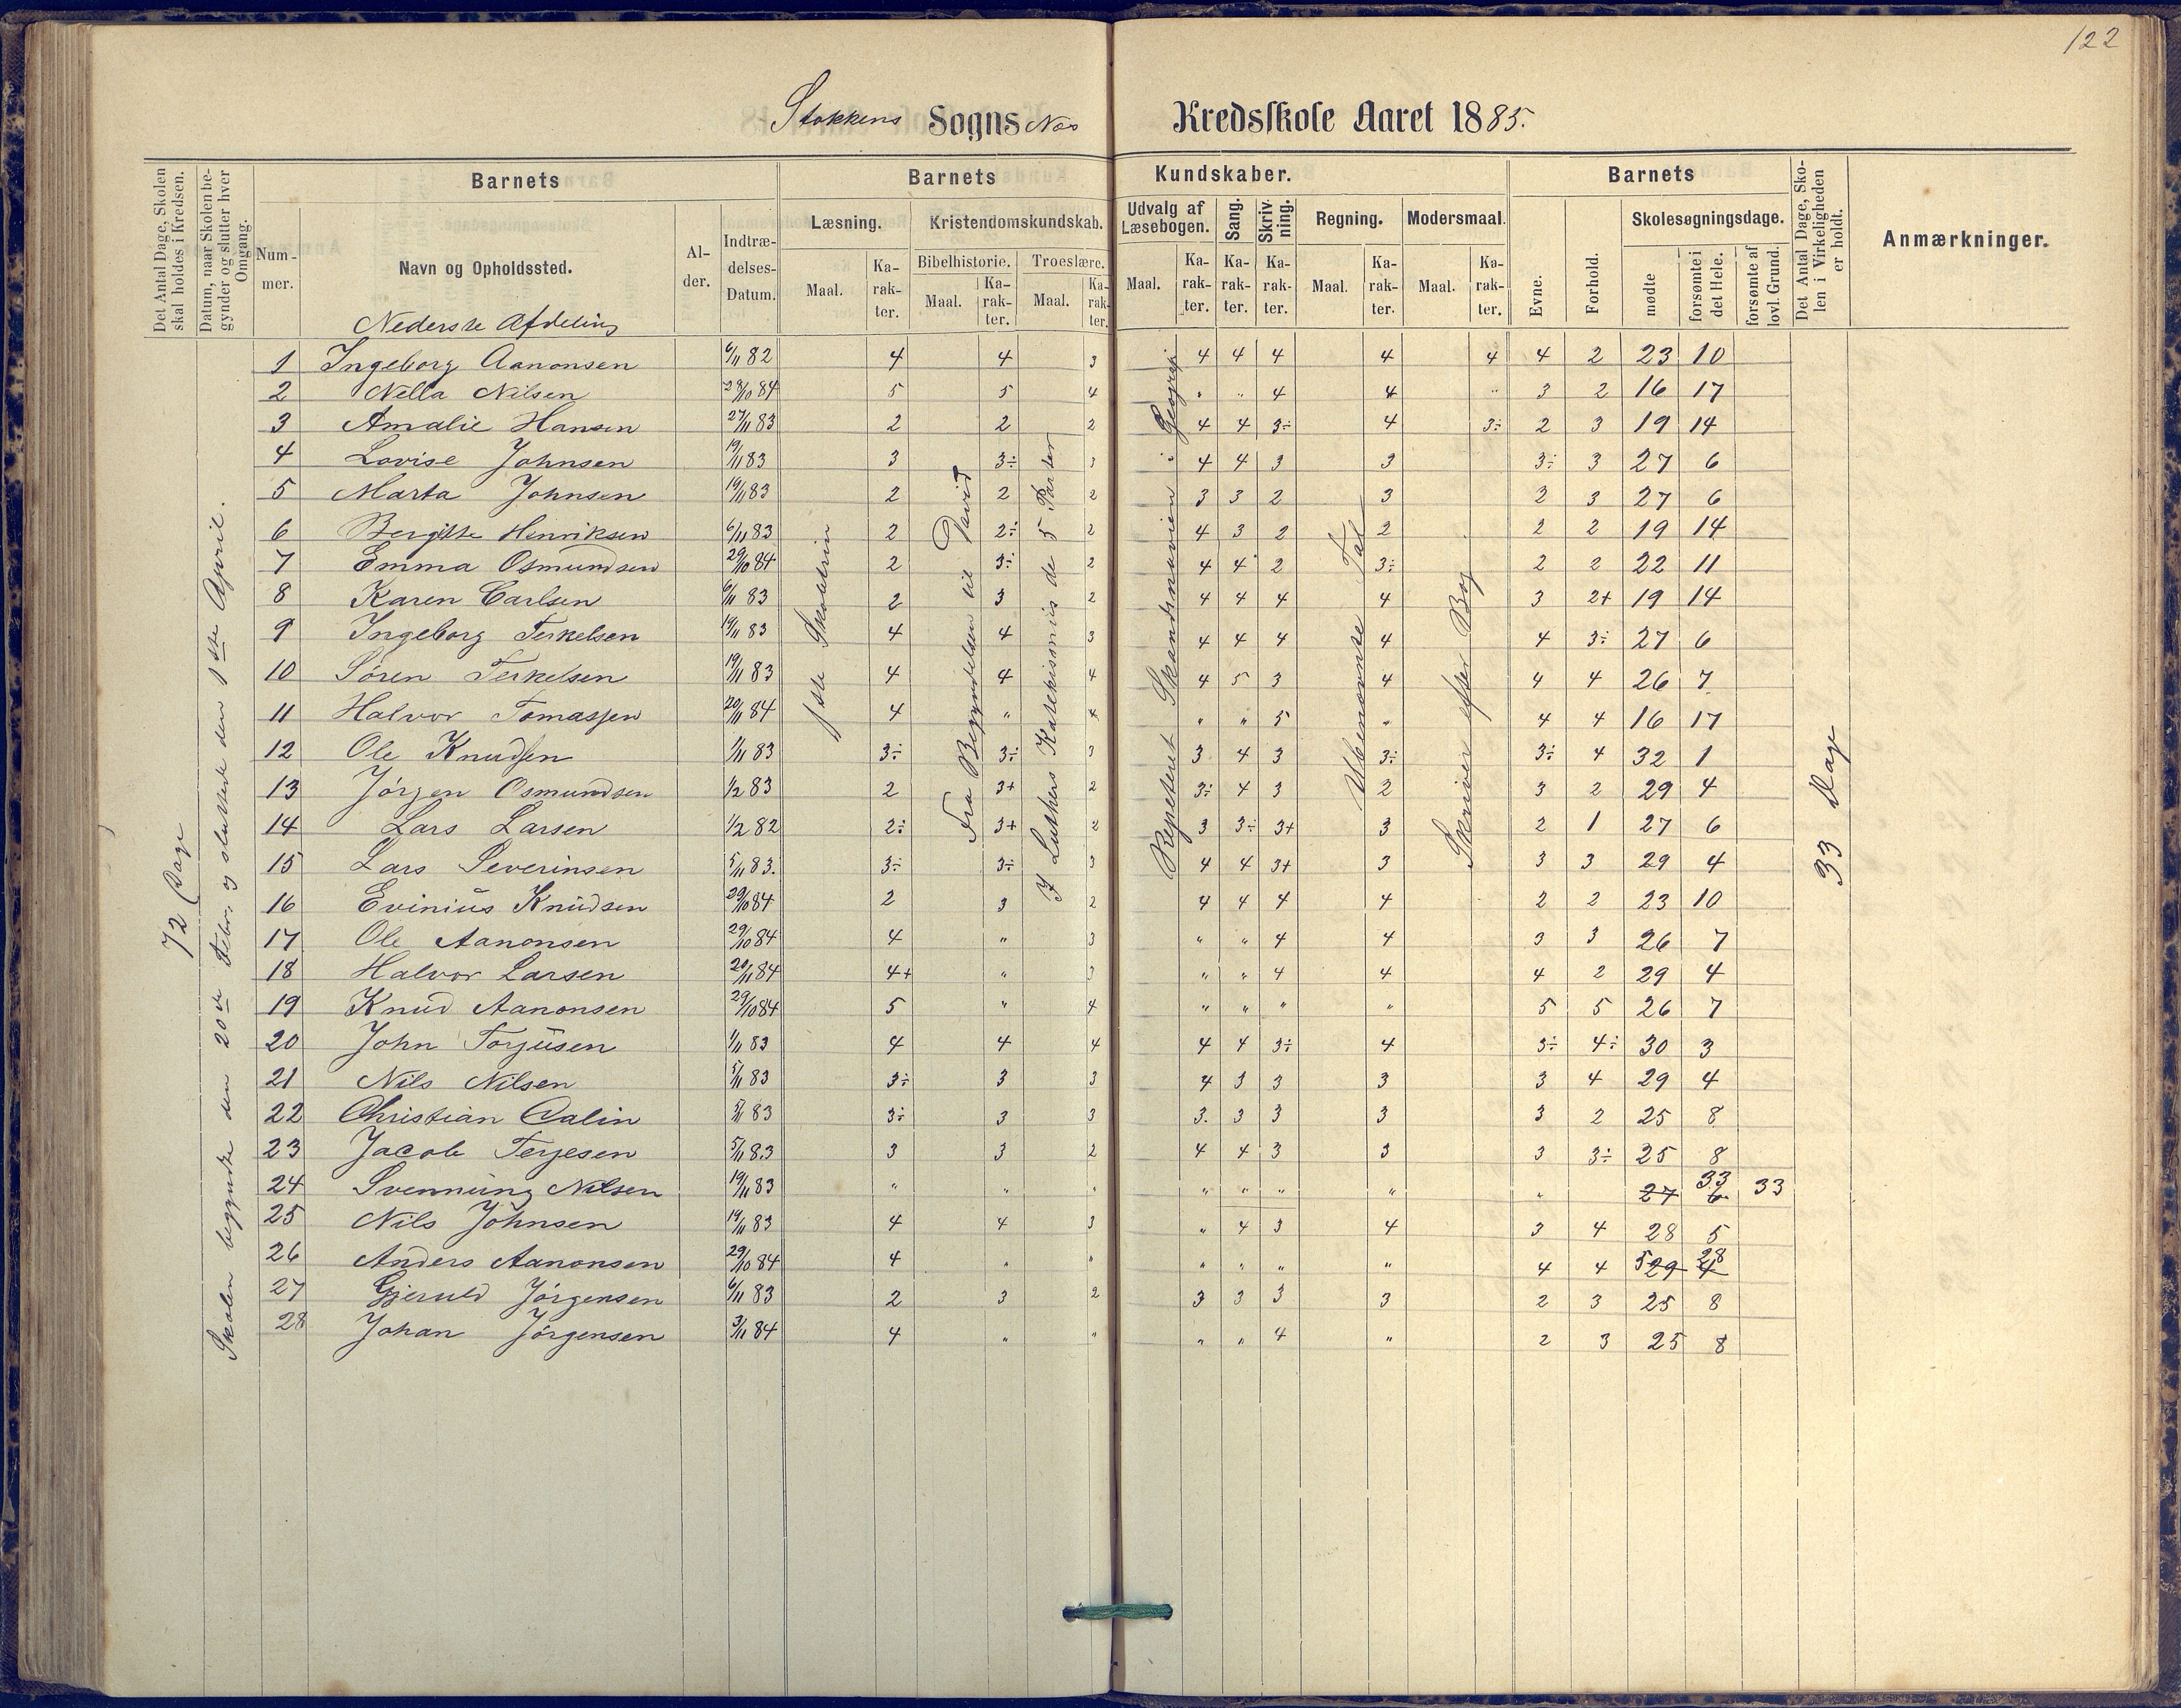 122
Stokkens Sogns Næs Kredsskole Aaret 1885.
Det Antal Dage, Skolen skal holdes i Kredsen.
Datum, naar Skolen begynder og slutter hver Omgang.
Nummer.
Barnets
Navn og Opholdssted.
Alder.
Indtrædelses-Datum.
Barnets Kundskaber.
Læsning.
Maal. Karakter.
Kristendomskundskab.
Bibelhistorie. Troeslære.
Maal. Karakter. Maal. Karakter.
Udvalg af Læsebogen.
Maal. Karakter.
Sang. Karakter.
Skrivning. Karakter.
Regning.
Maal. Karakter.
Modersmaal.
Maal. Karakter.
Barnets
Evne. Forhold.
Skolesøgningsdage.
mødte forsømte i det Hele. forsømte af lovl. Grund.
Det Antal Dage, Skolen i Virkeligheden er holdt.
Anmærkninger.
Nederste Afdeling
72 Dage
Skolen begyndte den 20de Febr. og sluttede den 1ste April.
1ste Skoletrin
Fra Begyndelsen til David
I Luthers Katekismus de 5 Parter
Repeteret Skandinavien i Geografi
Ubenævnte Tal
Skriver efter Bog
33 Dage
1 Ingeborg Aanonsen 6/11 82 4 4 3 4 4 4 4 4 4 2 23 10
2 Nella Nilsen 29/10 84 5 5 4 " " 4 4 " 3 2 16 17
3 Amalie Hansen 27/11 83 2 2 2 4 4 3÷ 4 3÷ 2 3 19 14
4 Lovise Johnsen 19/11 83 3 3÷ 3 4 4 3 3 3÷ 3 27 6
5 Marta Johnsen 19/11 83 2 2 2 3 3 2 3 2 3 27 6
6 Bergitte Henriksen 6/11 83 2 2÷ 2 4 3 2 2 2 2 19 14
7 Emma Osmundsen 29/10 84 2 3÷ 2 4 4 2 3÷ 2 2 22 11
8 Karen Carlsen 6/11 83 2 3 2 4 4 4 4 3 2+ 19 14
9 Ingeborg Terkelsen 19/11 83 4 4 3 4 4 4 4 4 3÷ 27 6
10 Søren Terkelsen 19/11 83 4 4 4 4 5 3 4 4 4 26 7
11 Halvor Tomassen 20/11 84 4 " 4 " " 5 " 4 4 16 17
12 Ole Knudsen 1/11 83 3÷ 3÷ 3 3 4 3 3÷ 3÷ 4 32 1
13 Jørgen Osmundsen 1/2 83 2 3+ 2 3÷ 4 3 2 3 2 29 4
14 Lars Larsen 1/2 82 2÷ 3+ 2 3 3÷ 3+ 3 2 1 27 6
15 Lars Severinsen 5/11 83. 3÷ 3÷ 3 4 4 3+ 3 3 3 29 4
16 Evinius Knudsen 29/10 84 2 3 2 4 4 4 4 2 2 23 10
17 Ole Aanonsen 29/10 84 4 " 3 " " 4 4 3 3 26 7
18 Halvor Larsen 20/11 84 4+ " 3 " " 4 4 4 2 29 4
19 Knud Aanonsen 29/10 84 5 " 4 " " " " 5 5 26 7
20 John Torjusen 1/11 83 4 4 4 4 4 3÷ 4 3÷ 4÷ 30 3
21 Nils Nilsen 5/11 83 3÷ 3 3 4 3 3 3 3 4 29 4
22 Christian Dalin 5/11 83 3÷ 3 3 3. 3 3 3 3 2 25 8
23 Jacob Terjesen 5/11 83 3 3 2 4 4 3 3 3 3÷ 25 8
24 Svennung Nilsen 19/11 83 " " " " " " " " 27 33 6 33
25 Nils Johnsen 19/11 83 4 4 3 " 4 3 4 3 4 28 5
26 Anders Aanonsen 29/10 84 4 " " " " " " 4 4 5 29 28 4
27 Gjeruld Jørgensen 6/11 83 2 3 2 3 3 3 3 2 3 25 8
28 Johan Jørgensen 3/11 84 4 " " " " 4 " 2 3 25 8